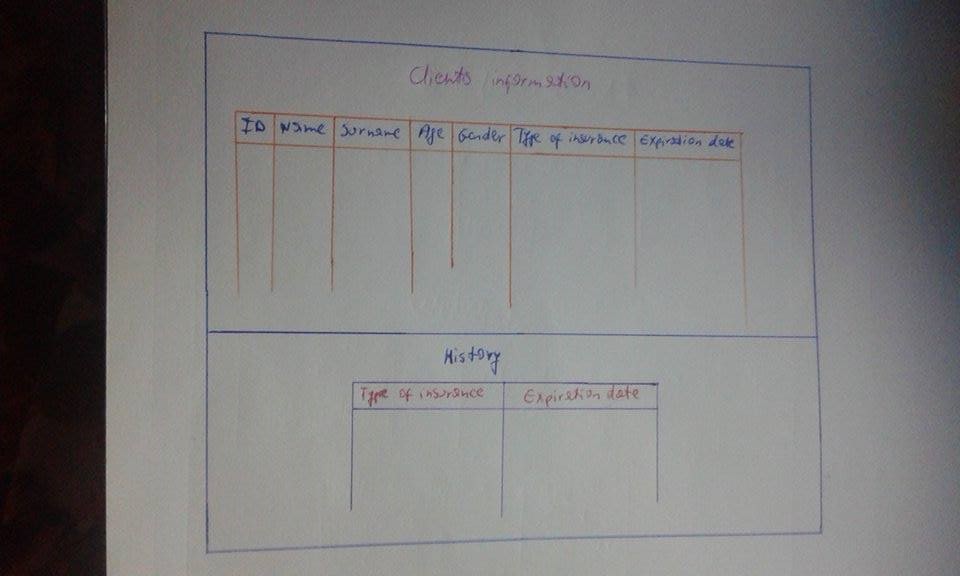 Clients information
ID Name Surname Age Gender Type of insurance Expiration date
History
Type of insurance Expiration date